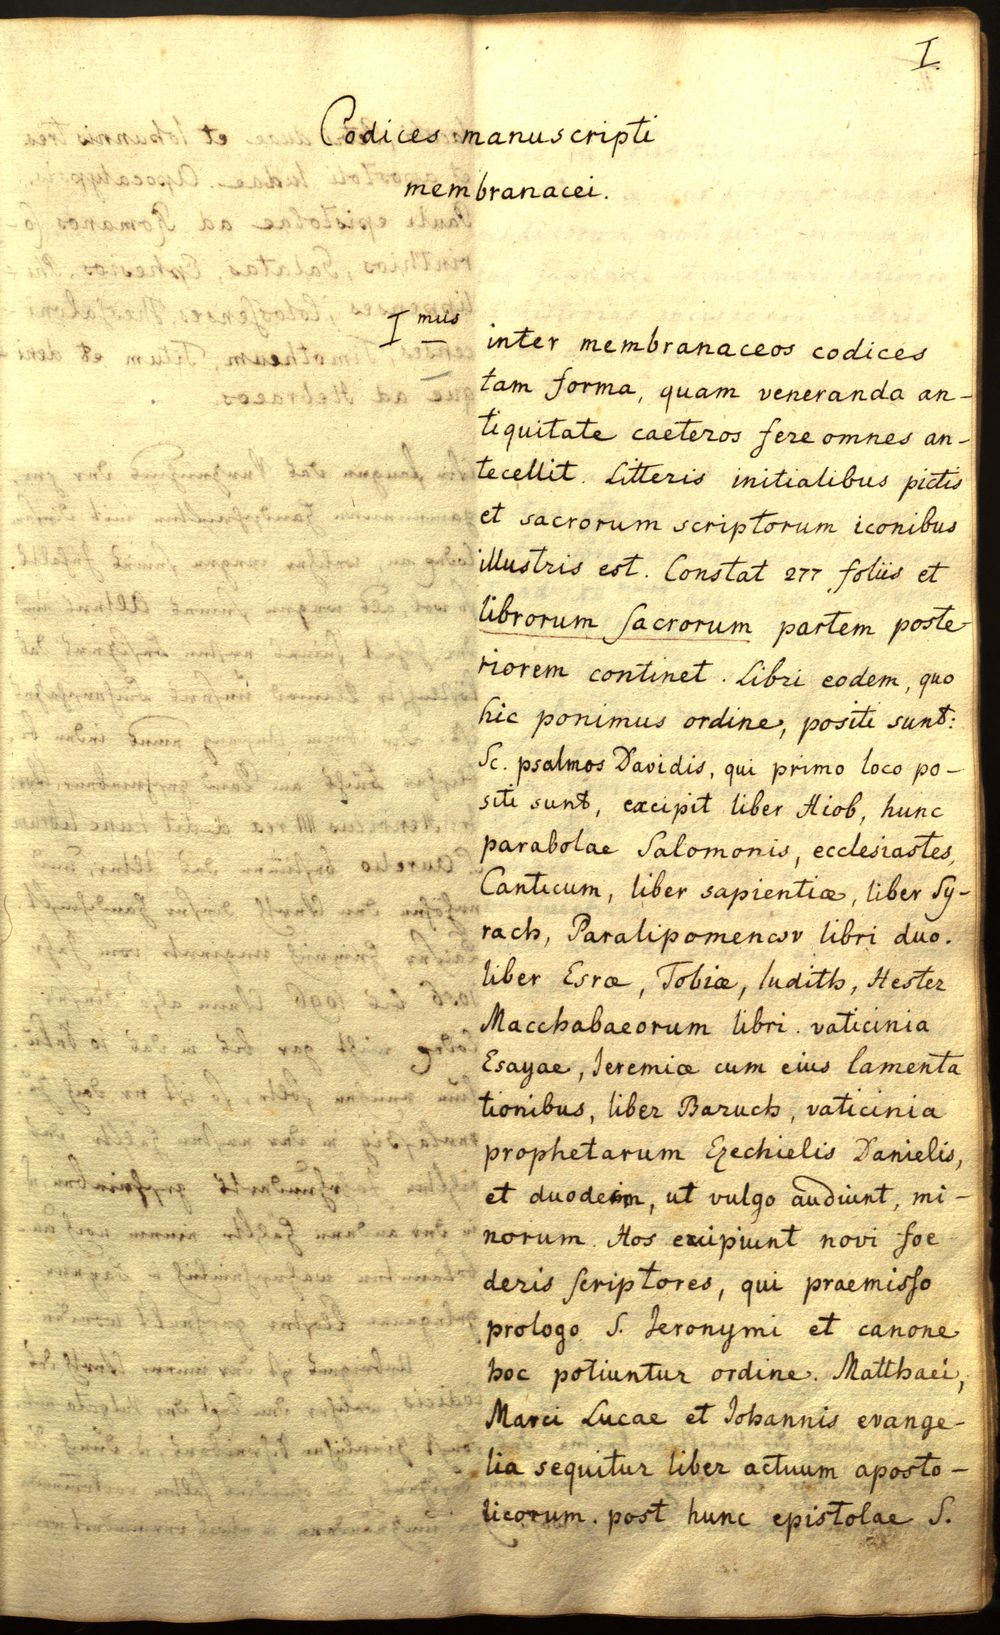 I.
Codices manuscripti
membranacei.
I mus inter membranaceos codices
tam forma, quam veneranda an-
tiquitate caeteros fere omnes an-
tecellit. Litteris initialibus pictis
et sacrorum scriptorum iconibus
illustris est. Constat 277 foliis et
librorum sacrorum partem poste
riorem continet. Libri eodem, quo
hic ponimus ordine, positi sunt:
Sc. psalmos Davidis, qui primo loco po-
siti sunt, excipit liber Hiob, hunc
parabolae Salomonis, ecclesiastes,
Canticum, liber sapientiæ, liber Sy-
rach, Paralipomenωv libri duo.
liber Esræ, Tobiæ, Iudith, Hester
Macchabaeorum libri. vaticinia
Esayae, Ieremiæ cum eius lamenta
tionibus, liber Baruch, vaticinia
prophetarum Ezechielis Danielis,
et duodecim, ut vulgo audiunt, mi-
norum. Hos excipiunt novi foe
deris scriptores, qui praemisso
prologo S. Ieronymi et canone
hoc potiuntur ordine. Matthaei,
Marci Lucae et Iohannis evange-
lia sequitur liber actuum aposto-
licorum. post hunc epistolae S.